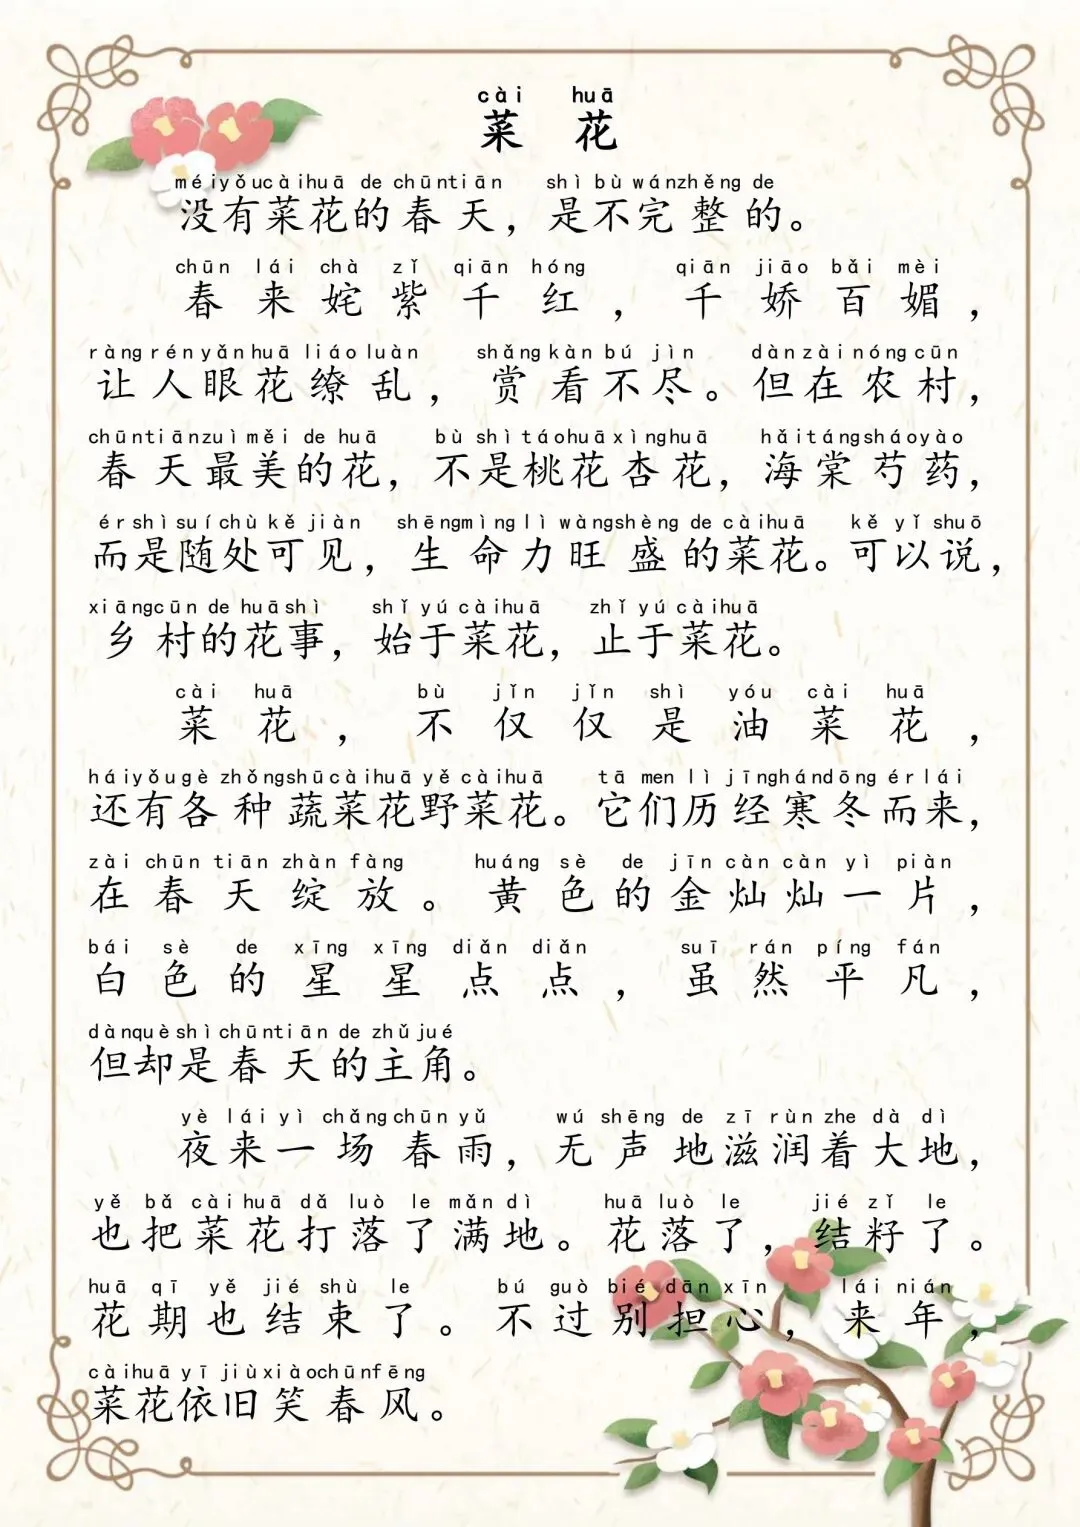 cài huā
菜花
méiyǒucàihuā de chūntiān shì bù wánzhěng de
没有菜花的春天，是不完整的。
chūn lái chà zǐ qiān hóng qiān jiāo bǎi mèi
春来姹紫千红，千娇百媚，
ràngrényǎnhuā liáoluàn shǎngkàn bú jìn dànzàinóngcūn
让人眼花缭乱，赏看不尽。但在农村，
chūntiānzuìměi de huā bù shìtáohuāxìnghuā hǎitángsháoyào
春天最美的花，不是桃花杏花，海棠芍药，
érshìsuíchù kě jiàn shēngmìnglì wàngshèng de càihuā kě yǐ shuō
而是随处可见，生命力旺盛的菜花。可以说，
xiāngcūn de huāshì shǐ yú càihuā zhǐ yú càihuā
乡村的花事，始于菜花，止于菜花。
cài huā bù jǐn jǐn shì yóu cài huā
菜花，不仅仅是油菜花，
háiyǒugè zhǒngshūcàihuāyě càihuā tā men lì jīnghándōng érlái
还有各种蔬菜花野菜花。它们历经寒冬而来，
zài chūn tiān zhàn fàng huáng sè de jīn càn càn yì piàn
在春天绽放。黄色的金灿灿一片，
bái sè de xīng xīng diǎn diǎn suī rán píng fán
白色的星星点点，虽然平凡，
dànquèshìchūntiān de zhǔ jué
但却是春天的主角。
yè lái yì chǎngchūn yǔ wú shēng de zī rùn zhe dà dì
夜来一场春雨，无声地滋润着大地，
yě bǎ càihuā dǎ luò le mǎn dì huā luò le jié zǐ le
也把菜花打落了满地。花落了，结籽了。
huā qī yě jié shù le bú guò bié dān xīn lái nián
花期也结束了。不过别担心，来年，
càihuā yī jiùxiàochūnfēng
菜花依旧笑春风。